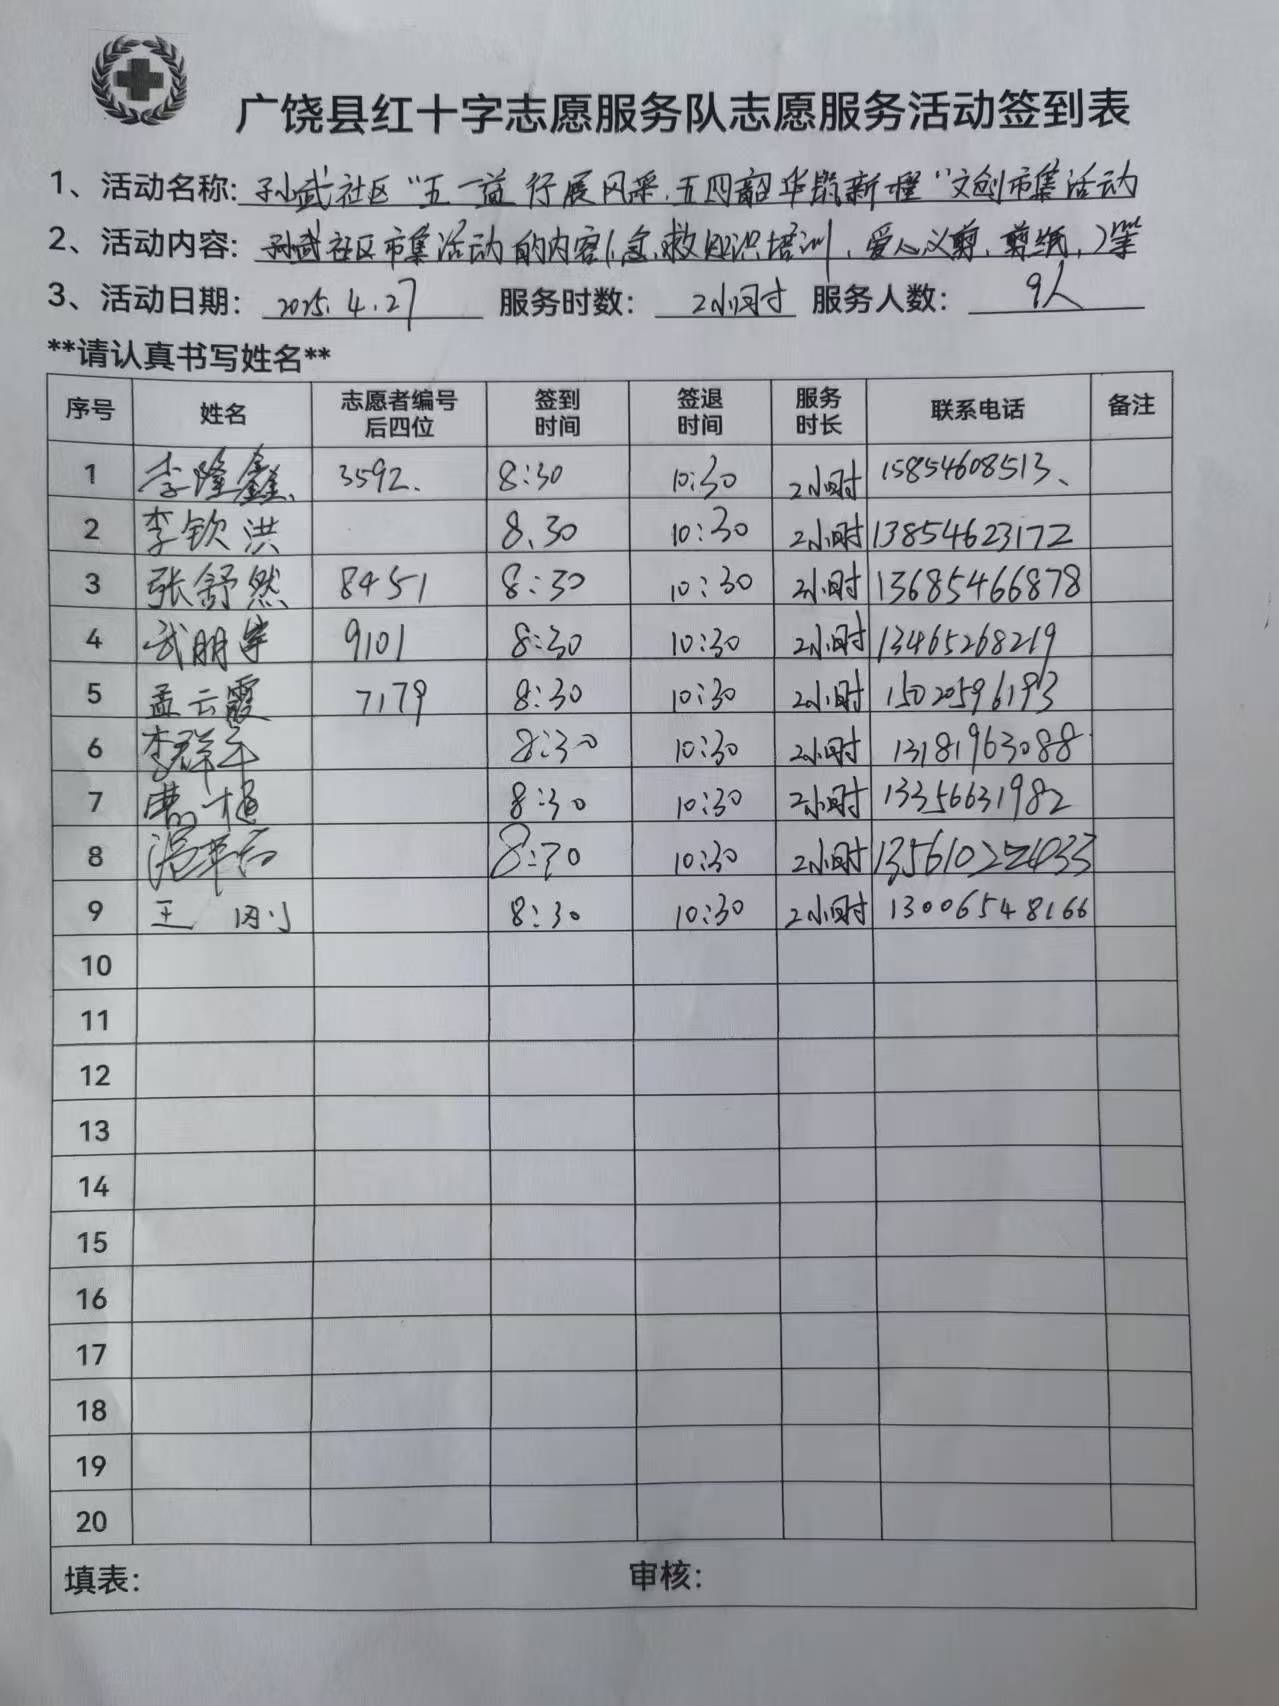 广饶县红十字志愿服务队志愿服务活动签到表
1、活动名称: 孙武社区“五一益行展风采,五四韶华启新程”文创市集活动
2、活动内容: 孙武社区市集活动的内容(急救知识培训、爱心义剪、剪纸,)等
3、活动日期: 2025.4.27 服务时数: 2小时 服务人数: 9人
**请认真书写姓名**
序号 姓名 志愿者编号后四位 签到时间 签退时间 服务时长 联系电话 备注
1 李隆鑫、 3592、 8:30 10:30 2小时 15854608513、
2 李钦洪 8.30 10:30 2小时 13854623172
3 张舒然 8451 8:30 10:30 2小时 13685466878
4 武明宇 9101 8:30 10:30 2小时 13465268219
5 孟云霞 7179 8:30 10:30 2小时 1502596193
6 李群平 8:30 10:30 2小时 13181963088
7 8:30 10:30 2小时 13356631982
8 8:30 10:30 2小时
9 王刚 8:30 10:30 2小时 13006548166
10
11
12
13
14
15
16
17
18
19
20
填表: 审核: